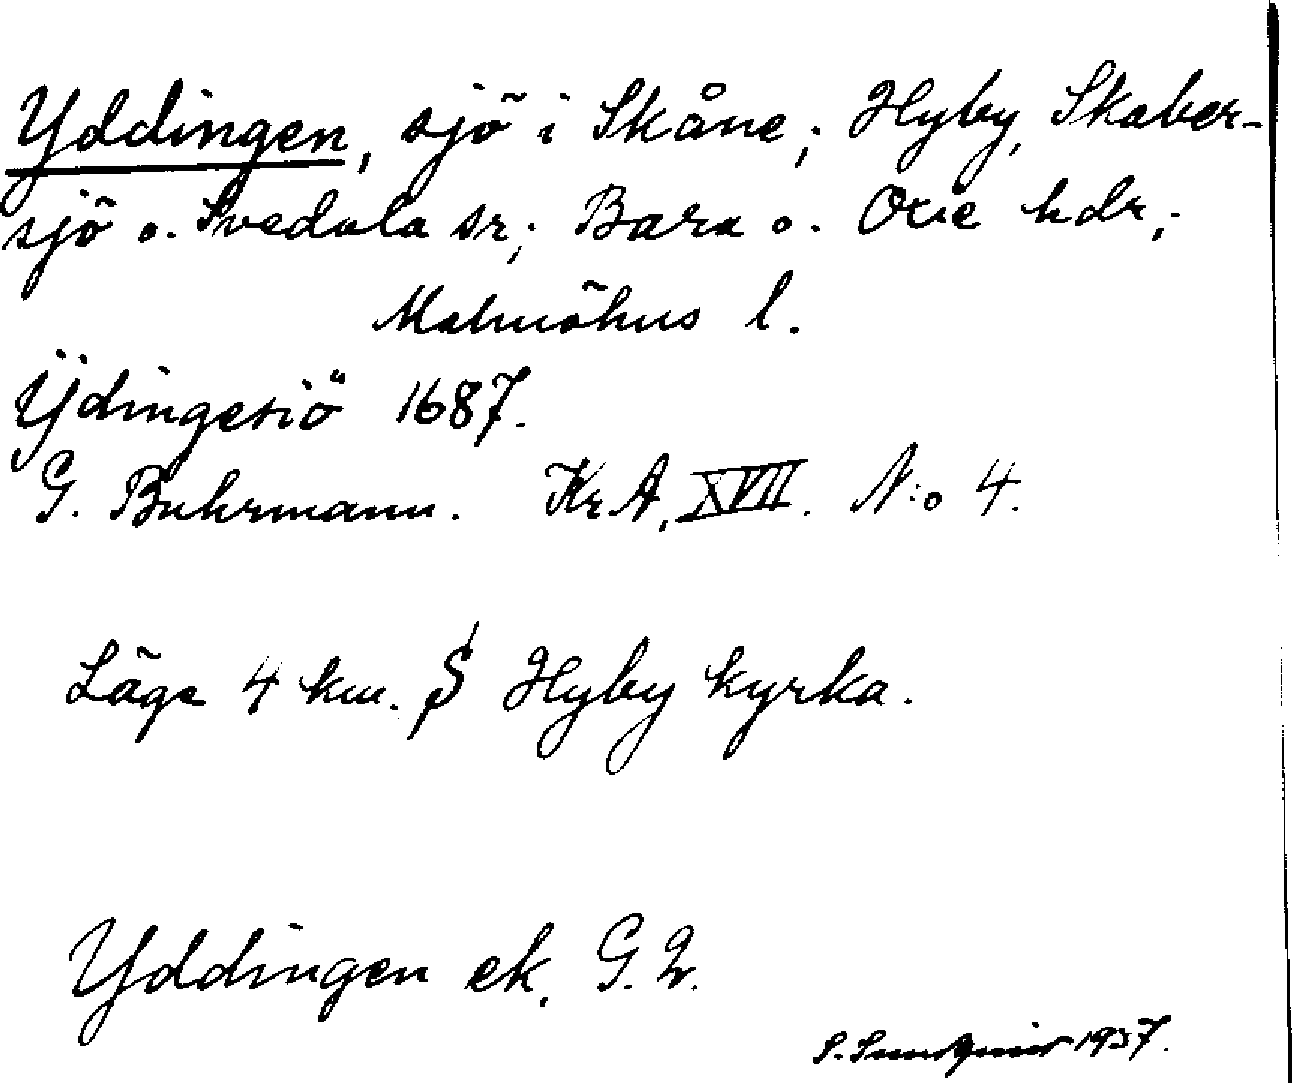 Yddingen, sjö i Skåne; Hyby, Skaber-
sjö o. Svedala sr; Bara o. Oxie hdr;
Malmöhus l.
Ÿdingesiö 1687.
G. Buhrmann. Kr.A. XVII. N:o 4.
Läge 4 km. S Hyby kyrka.
Yddingen ek. G. 2.
S. Sundquist 1937.